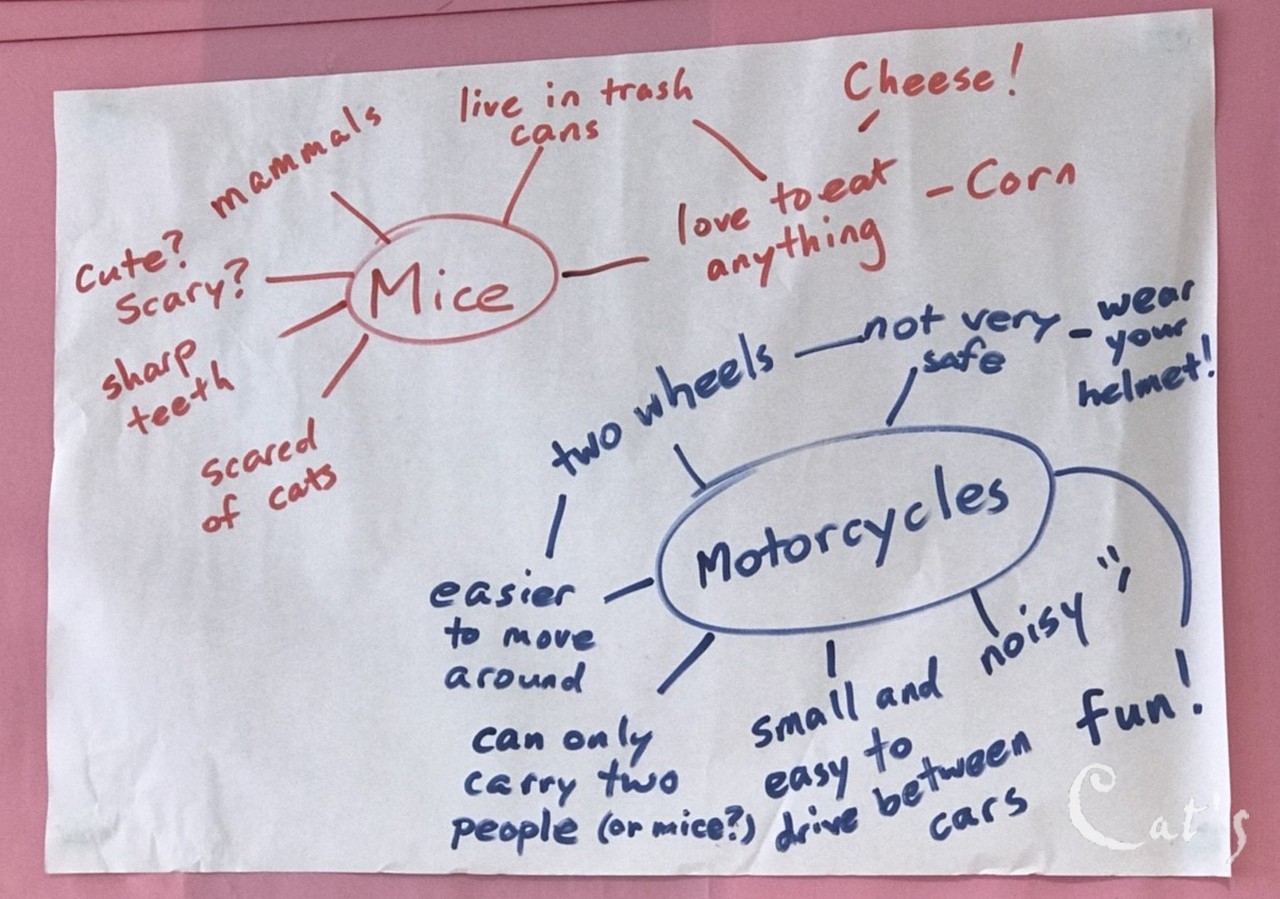 mammals
live in trash
cans
Cheese!
love to eat
anything
- Corn
cute?
Scary?
Mice
sharp
teeth
scared
of cats
two wheels
not very
safe
- wear
your
helmet!
Motorcycles
easier
to move
around
can only
carry two
people (or mice?)
small and
easy to
drive between
cars
noisy
fun!
Cats